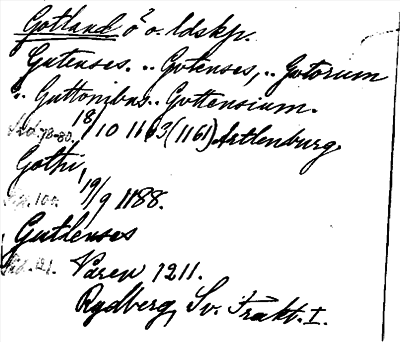 Gotland ö o. ldskp.
Gutenses. .. Gotenses, .. Gotorum
.. Guttonibus .. Guttensium.
Sid. 78-80. 18/10 1163 (1161) Artlenburg
Gothi,
Sid. 104. 19/9 1188.
Gutlenses
Sid. 121. Våren 1211.
Rydberg, Sv. Trakt. I.